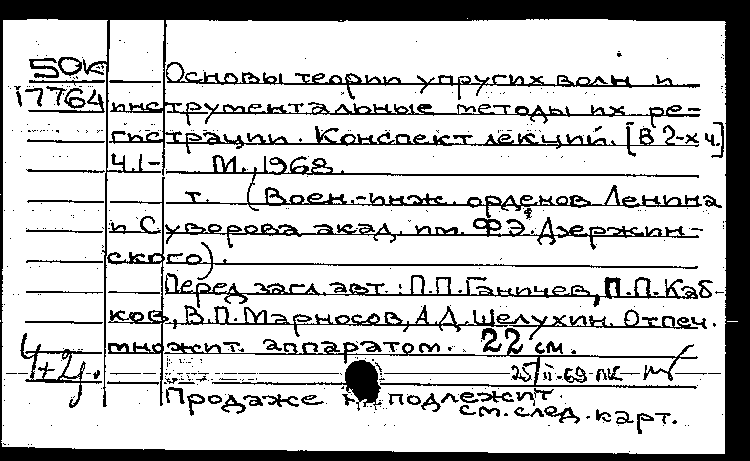 50К Основы теории упругих волн и
17764 инструментальные методы их ре=
гистрации. Конспект лекций. [В 2-х ч.]
Ч.1- М., 1968.
т. (Воен.-инж. орденов Ленина
и Суворова акад. им. Ф.Э. Дзержин-
ского).
Перед загл. авт.: П.П. Ганичев, П.П. Каб-
ков, В.П. Марносов, А.Д. Шелухин. Отпеч.
множит. аппаратом. 22 см.
4+2д. 25/II-69 ПК
Продаже не подлежит.
см. след. карт.